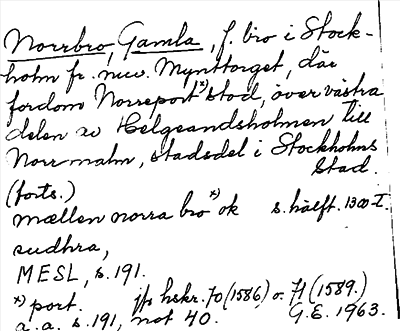 Norrbro, Gamla, f. bro i Stock-
holm fr. nuv. Mynttorget, där
fordom Norreport*) stod, över västra
delen av Helgeandsholmen till
Norrmalm, stadsdel i Stockholms
stad.
(forts.)
mællen norra bro*) ok s. hälft. 1300-t.
sudhra,
MESL, s. 191.
*) port. jfr hskr. 70 (1586) o. 71 (1589.)
a.a. s. 191, not 40. G.E. 1963.